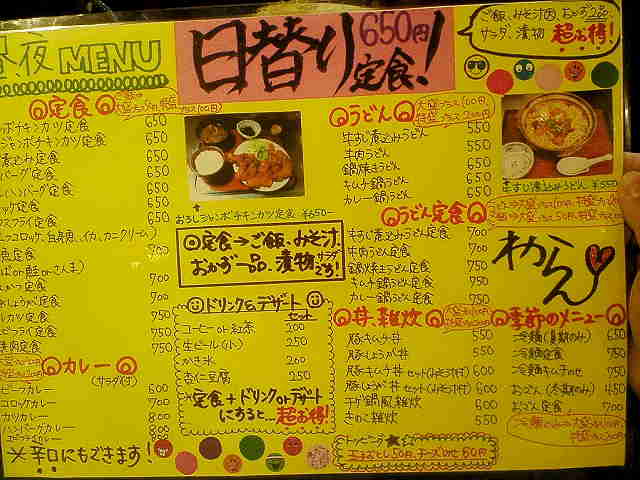 夜 MENU
日替り 650円 定食!
ご飯、みそ汁、おかず2品、
サラダ、漬物 超お得!
定食
ジャンボチキンカツ定食 650
煮込み定食 650
ハンバーグ定食 650
650
ミックスフライ定食 650
(コロッケ、白身魚、イカ、カニクリーム)
魚定食 700
(さばor鮭orさんま)
とんかつ定食 700
しょうが定食 700
750
エビフライ定食 750
焼肉定食 750
おろしジャンボチキンカツ定食 ¥650-
定食→ご飯、みそ汁、
おかず一品、漬物 サラダ です!
ドリンク&デザート
セット
コーヒーor紅茶 200
生ビール(小) 250
かき氷 200
杏仁豆腐 250
*定食+ドリンクorデザート
にすると... 超お得!
カレー
(サラダ付)
ビーフカレー 600
コロッケカレー 700
カツカレー 800
ハンバーグカレー 800
※辛口にもできます!
うどん
大盛プラス100円
特盛プラス200円
牛すじ煮込みうどん 550
牛肉うどん 550
鍋焼きうどん 650
キムチ鍋うどん 650
カレー鍋うどん 650
うどん定食
牛すじ煮込うどん定食 700
牛肉うどん定食 700
鍋焼きうどん定食 750
キムチ鍋うどん定食 750
カレー鍋うどん定食 750
牛すじ煮込みうどん ¥550
わからん
丼、雑炊
豚キムチ丼 550
豚しょうが丼 550
豚キムチ丼セット(みそ汁付) 600
豚しょうが丼セット(みそ汁付) 600
チゲ鍋風雑炊 600
きのこ雑炊 550
トッピング
玉子おとし50円、チーズのせ80円
季節のメニュー
冷麺(夏期のみ) 650
冷麺定食 750
冷麺キムチのせ 750
おでん(冬期のみ) 450
おでん定食 700